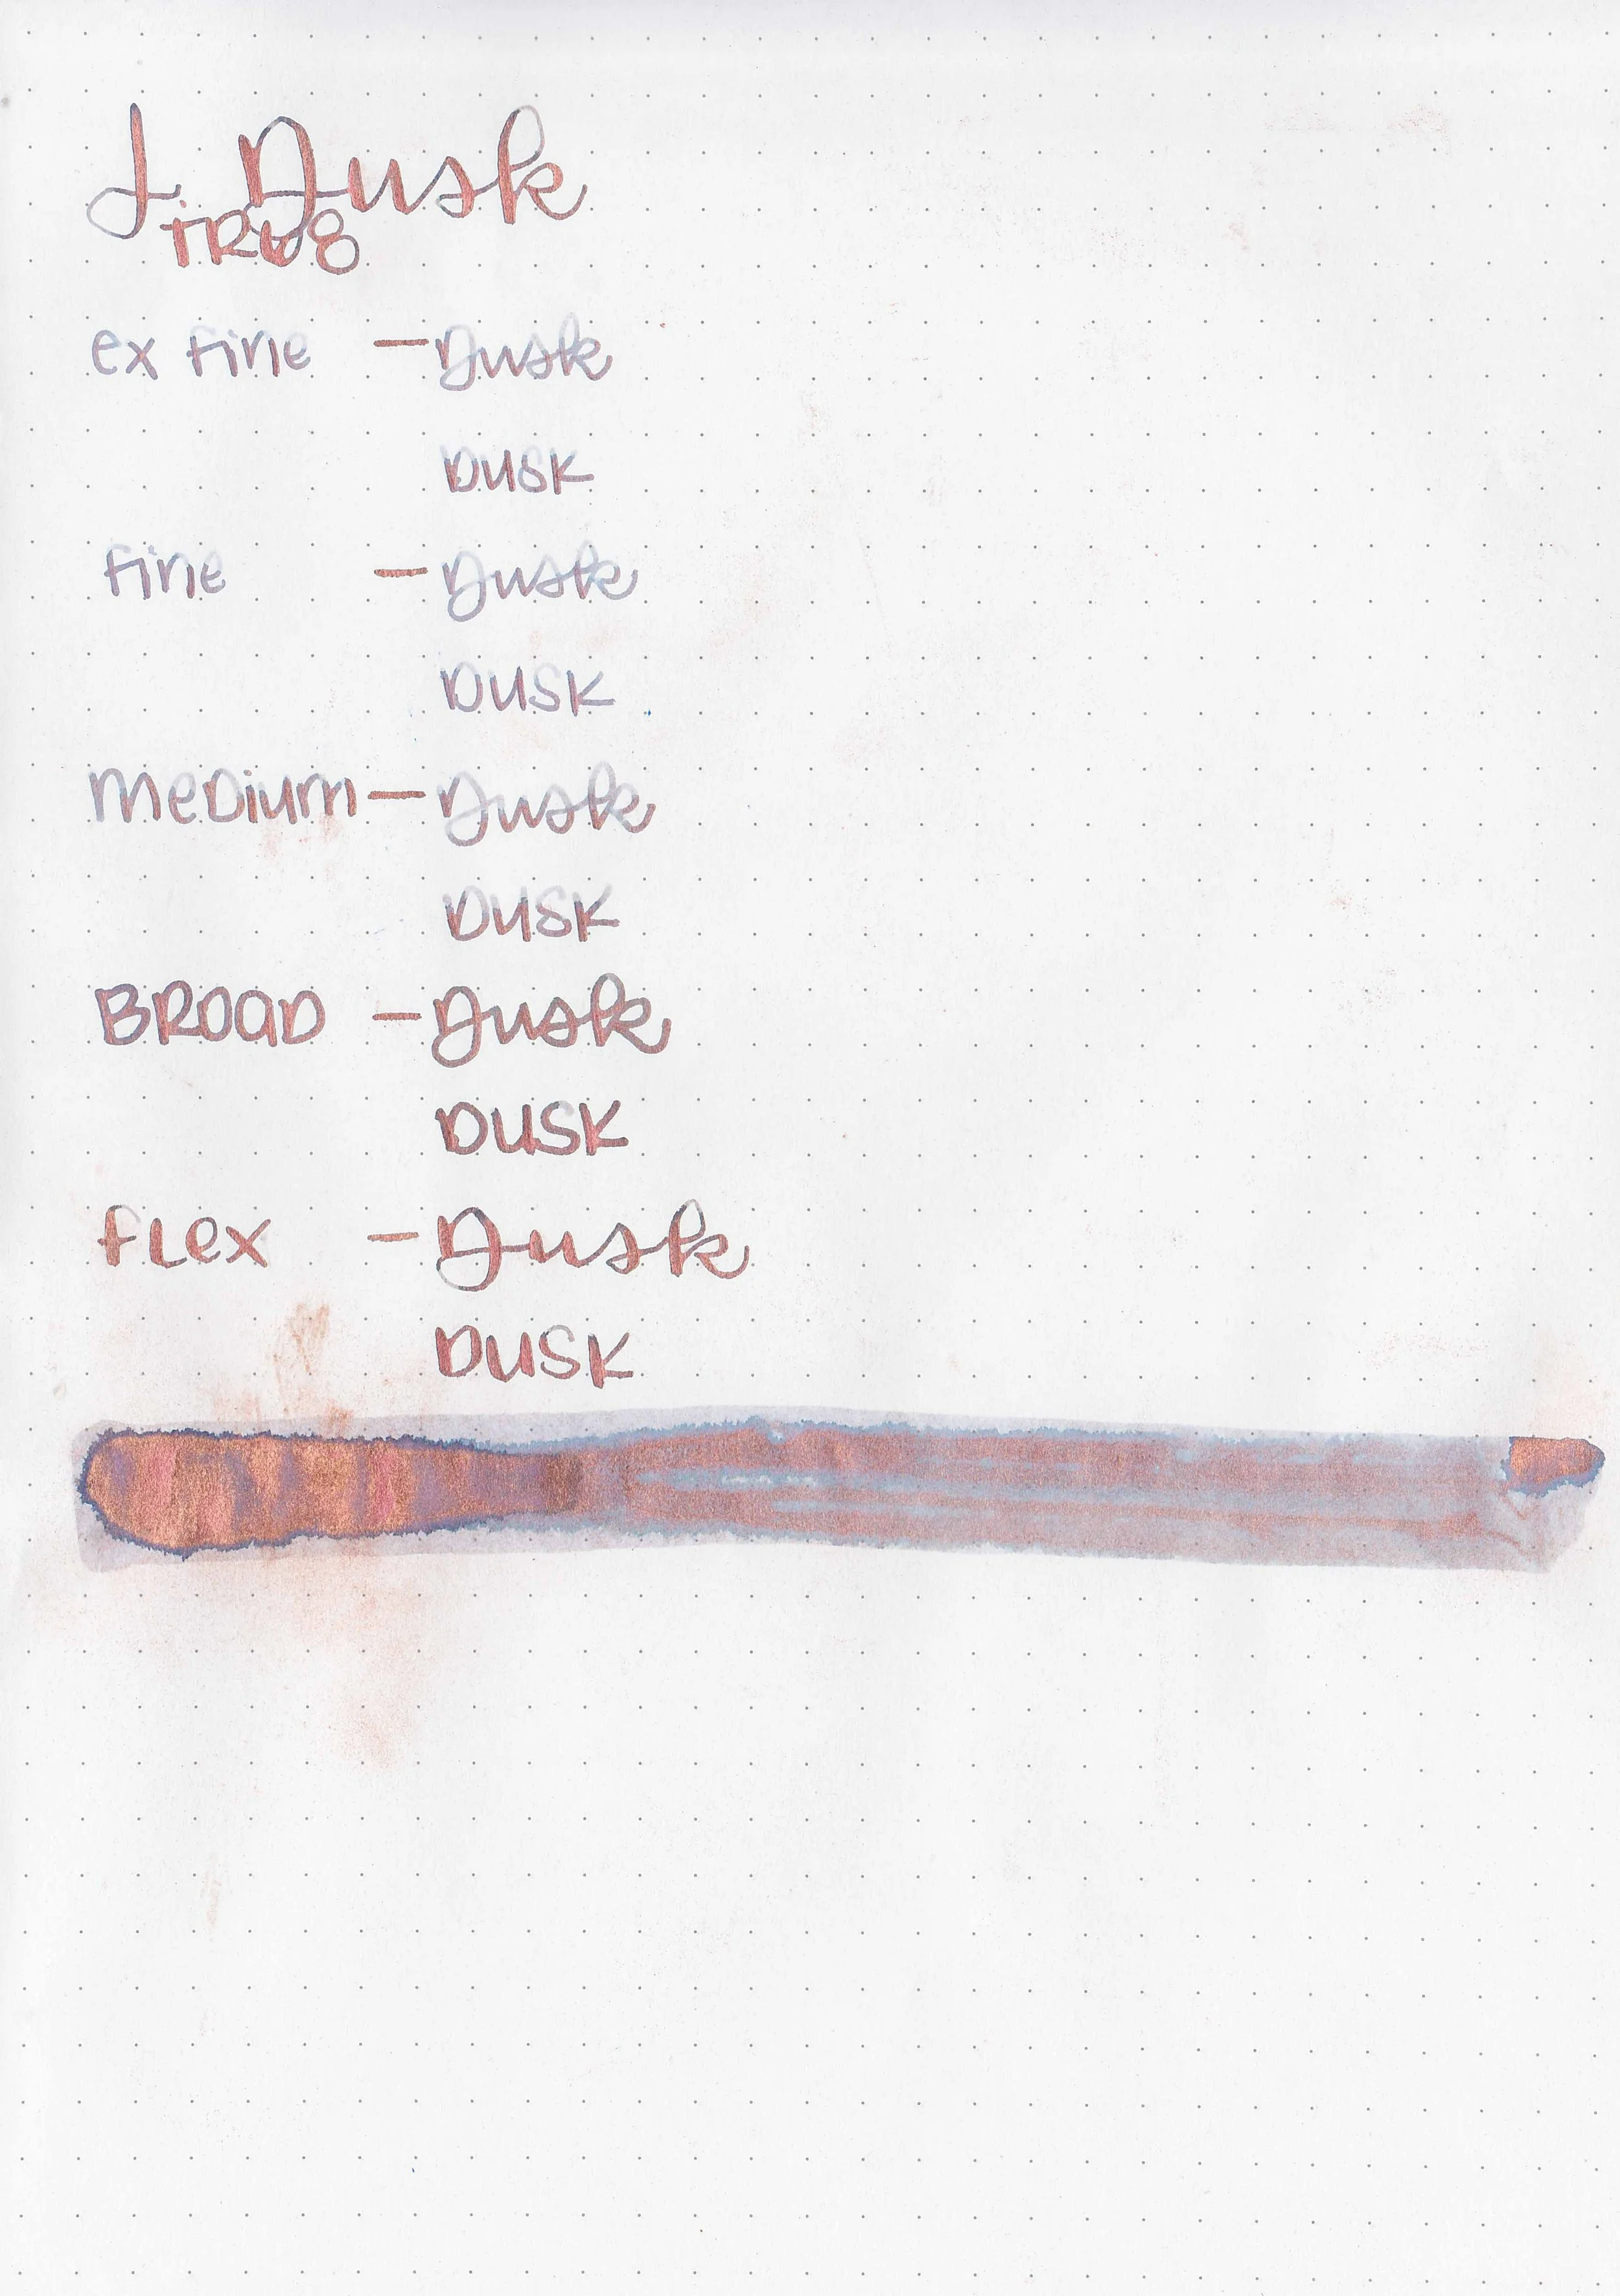 J. Dusk
TR68
ex fine — Dusk
DUSK
fine — Dusk
DUSK
Medium — Dusk
DUSK
BROAD — Dusk
DUSK
flex — Dusk
DUSK